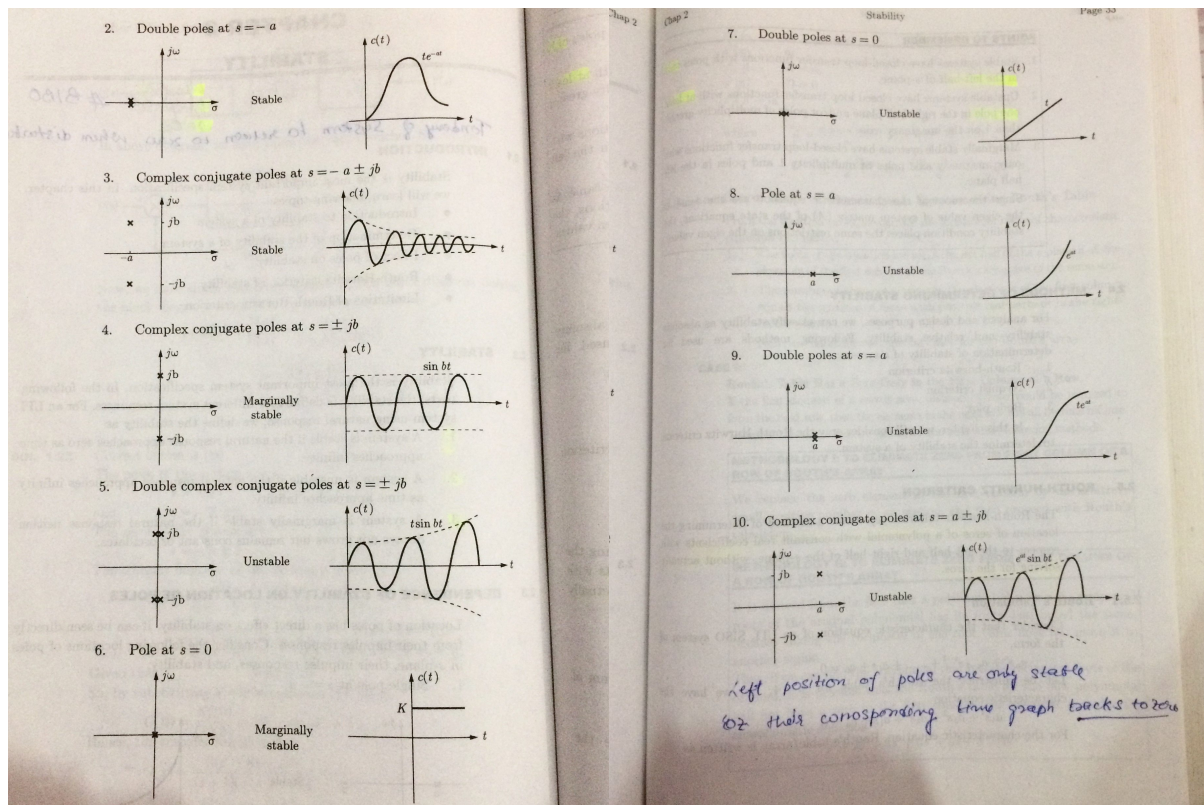 2. Double poles at s = − a
jω
σ
Stable
c(t)
te⁻ᵃᵗ
t
3. Complex conjugate poles at s = − a ± jb
jω
jb
−a
σ
−jb
Stable
c(t)
t
4. Complex conjugate poles at s = ± jb
jω
jb
σ
−jb
Marginally
stable
c(t)
sin bt
t
5. Double complex conjugate poles at s = ± jb
jω
jb
σ
−jb
Unstable
c(t)
t sin bt
t
6. Pole at s = 0
jω
σ
Marginally
stable
c(t)
K
t
Chap 2
Chap 2
Stability
Page 33
7. Double poles at s = 0
jω
σ
Unstable
c(t)
t
t
8. Pole at s = a
jω
a
σ
Unstable
c(t)
eᵃᵗ
t
9. Double poles at s = a
jω
a
σ
Unstable
c(t)
teᵃᵗ
t
10. Complex conjugate poles at s = a ± jb
jω
jb
a
σ
−jb
Unstable
c(t)
eᵃᵗ sin bt
t
Left position of poles are only stable
coz their corrosponding time graph tracks to zero